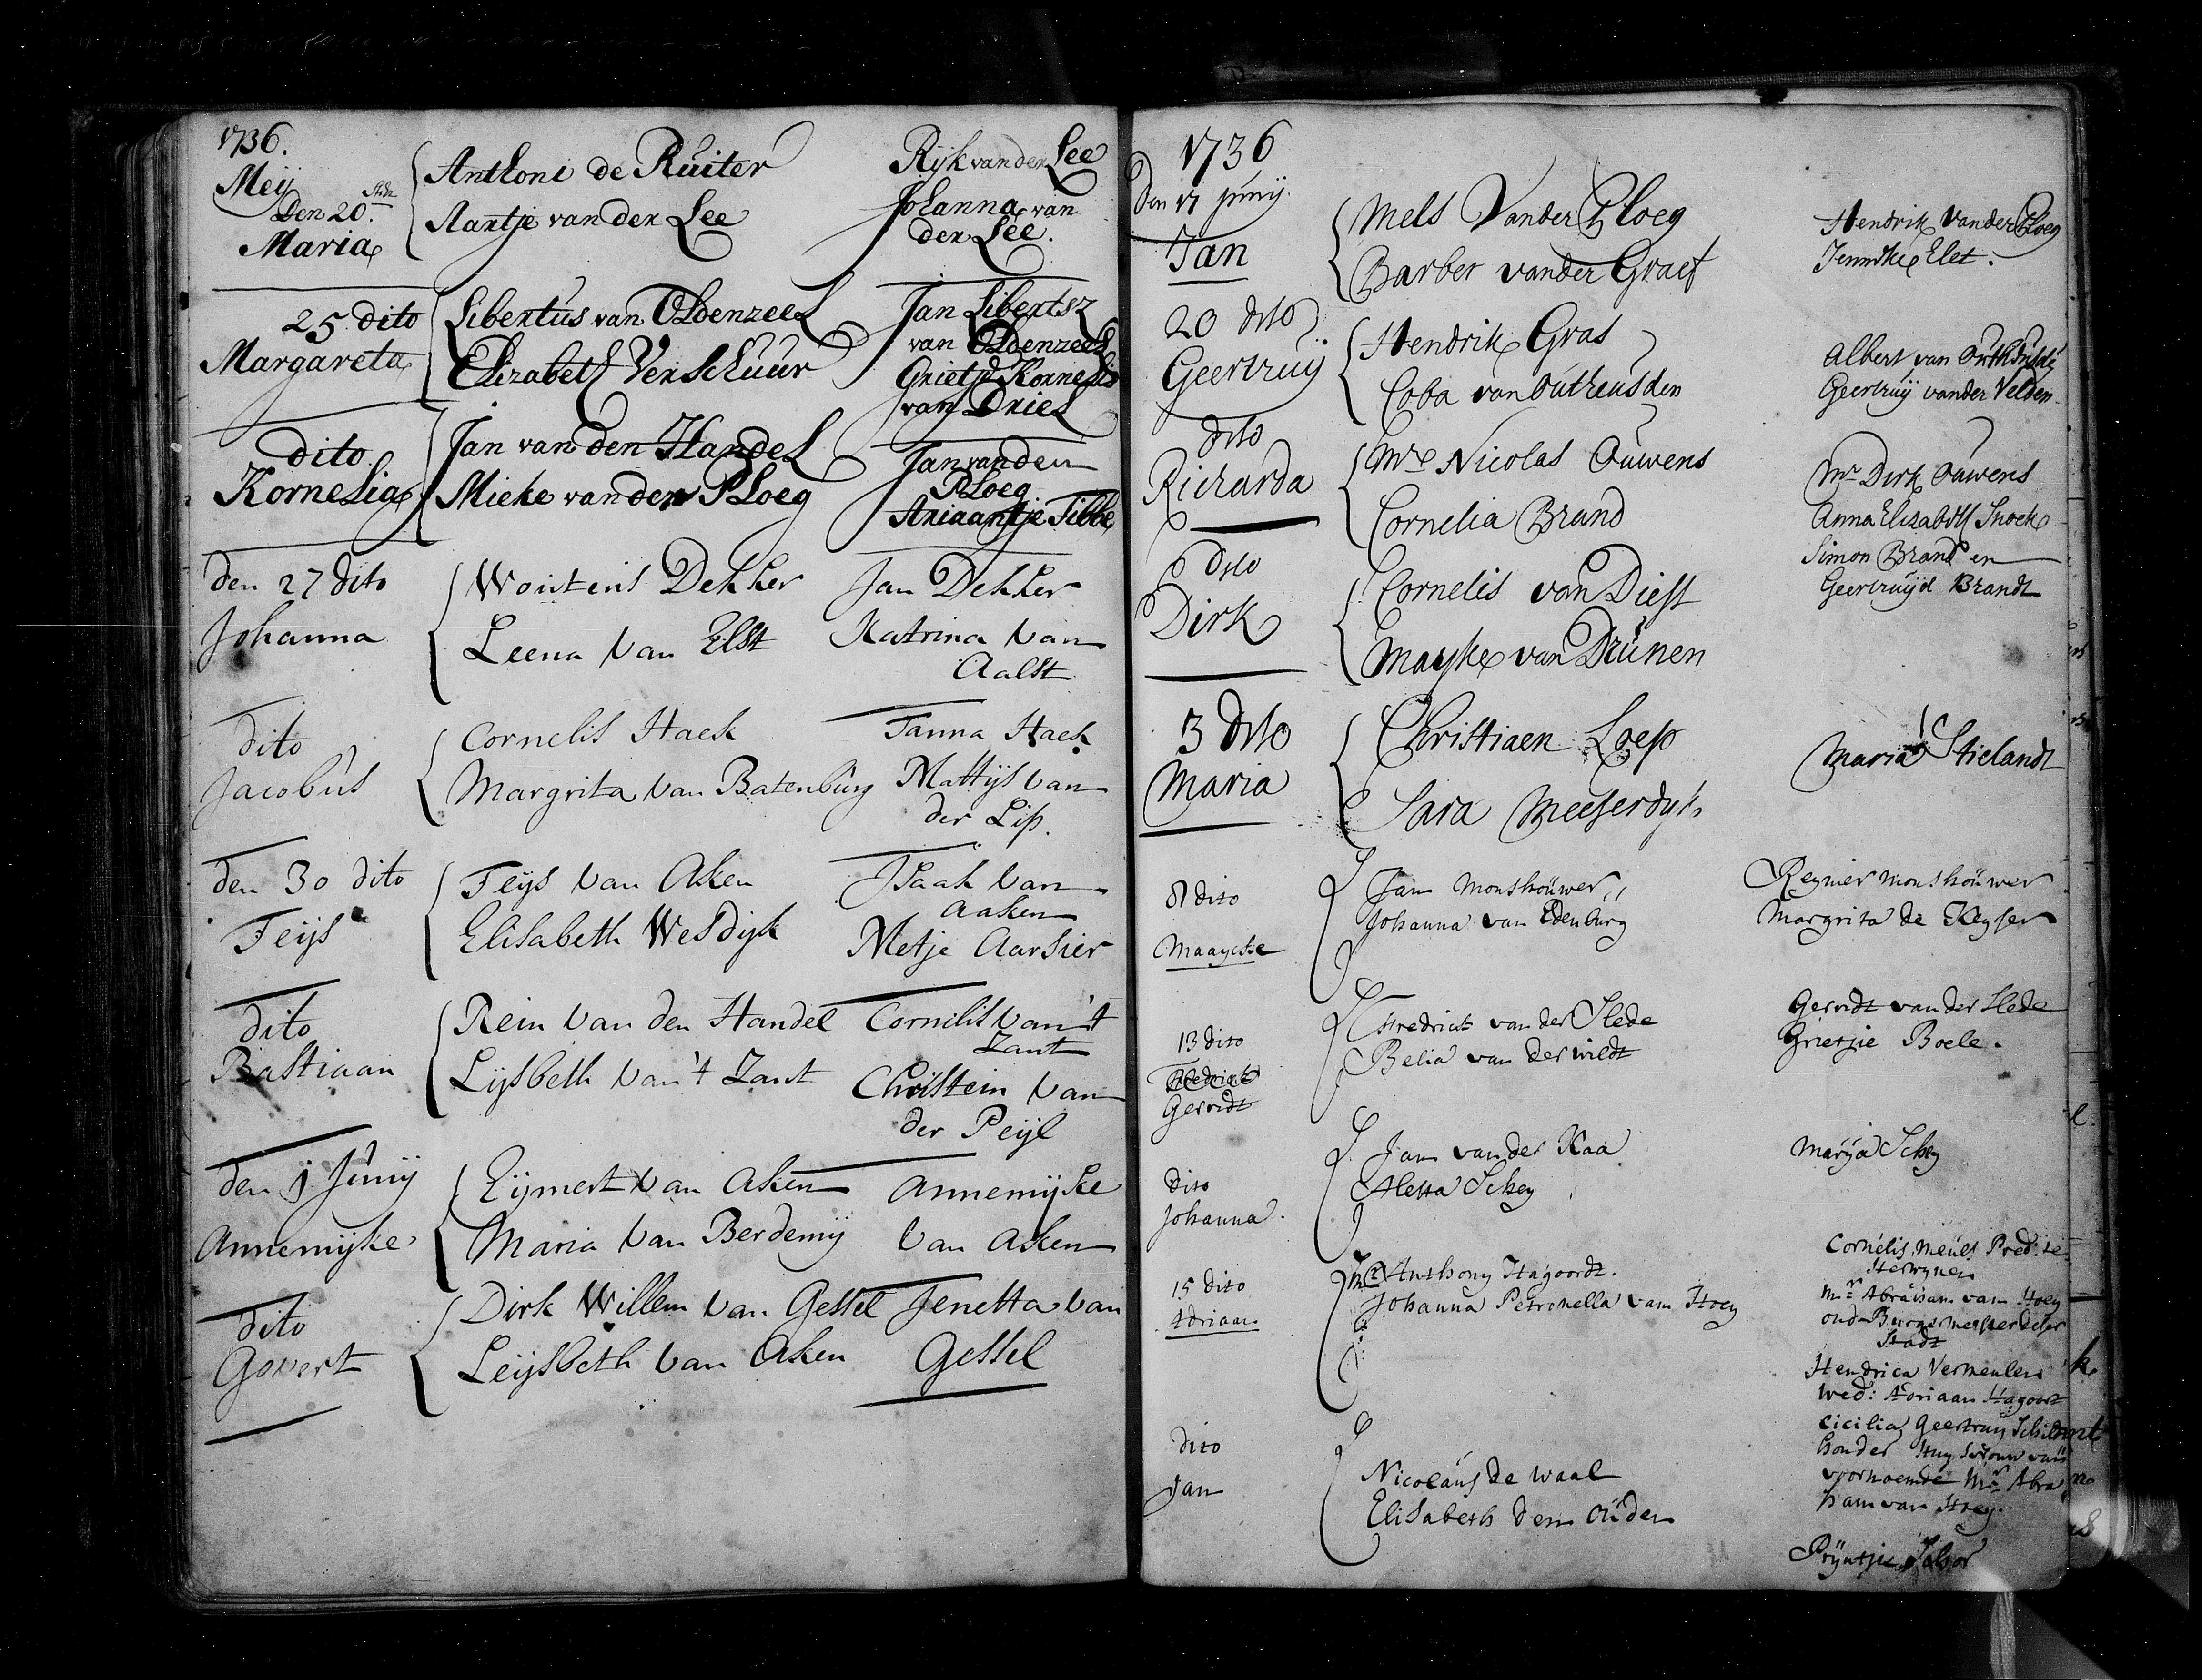 1736.
Meij
Den 20.
Maria
Anthoni de Ruiter
Aantje van den Lee
Rijk van den Lee
Johanna van
den Lee.
25 dito
Margareta
Libertus van Oldenzeel
Elizabeth Verschuur
Jan Libertsz
van Oldenzeel
Grietje Kornelis
van Driel
dito
Kornelia
Jan van den Handel
Mieke van den Ploeg
Jan van den
Ploeg
Ariaantje Tibbe
den 27 dito
Johanna
Wouterus Dekker
Leena van Elst
Jan Dekker
Katrina van
Aalst
dito
Jacobus
Cornelis Haek
Margrita van Batenburg
Janna Haek
Mattijs van
der Lip.
den 30 dito
Feijs
Feijs van Aken
Elisabeth Wesdijk
Isaak van
Aaken
Metje Aarsier
dito
Bastiaan
Rein van den Handel
Lijsbeth van 't Zant
Cornelis van 't
Zant
Christein van
der Peijl
den 1 Junij
Annemijke
Eijmert van Aken
Maria van Berdemij
Annemijke
van Aken
dito
Govert
Dirk Willem van Gessel
Leijsbeth van Aken
Jenetta van
Gessel
1736
Den 17 junij.
Jan
Mels Vander Ploeg
Barber vander Graef
Hendrik Vander Ploeg
Elet.
20 dito
Geertruij
Hendrik Gras
Coba van Outheusden
Albert van
Geertruij vander Velden
dito
Richarda
Mr Nicolas Ouwens
Cornelia Brand
Mr Dirk Ouwens
Anna Elizabeth Snoek
Simon Brand en
Geertruijd Brandt
dito
Dirk
Cornelis van Diest
Mayke van Drunen
3 dito
Maria
Christiaen Loep
Sara Meeserdyk
Maria Stielandt
8 dito
Maaychie
Jan Monshouwer
Johanna van Edenburg
Reynier Monshouwer
Margrita de Keyser
13 dito
Gerridt
Fredrick van der Slede
Belia van der Wildt
Gerridt van der Slede
Grietjie Boele.
dito
Johanna.
Jan van der Kaa
Aletta Schey
Marija Schey
15 dito
Adriaan
Mr Anthony Hagoordt.
Johanna Petronella van Hoey
Cornelis Meuls Pred: te
Herwynen
Mr Abraham van Hoey
oud Burgemeester deser
Stadt
Hendrica Vermeulen
wed: Adriaan Hagoort
Cicilia Geertruy Schild
houder Huysvrouw van
voornoemde Mr Abra
ham van Hoey.
dito
Jan
Nicolaus de Waal
Elisabeth den Ouden
Pryntjie